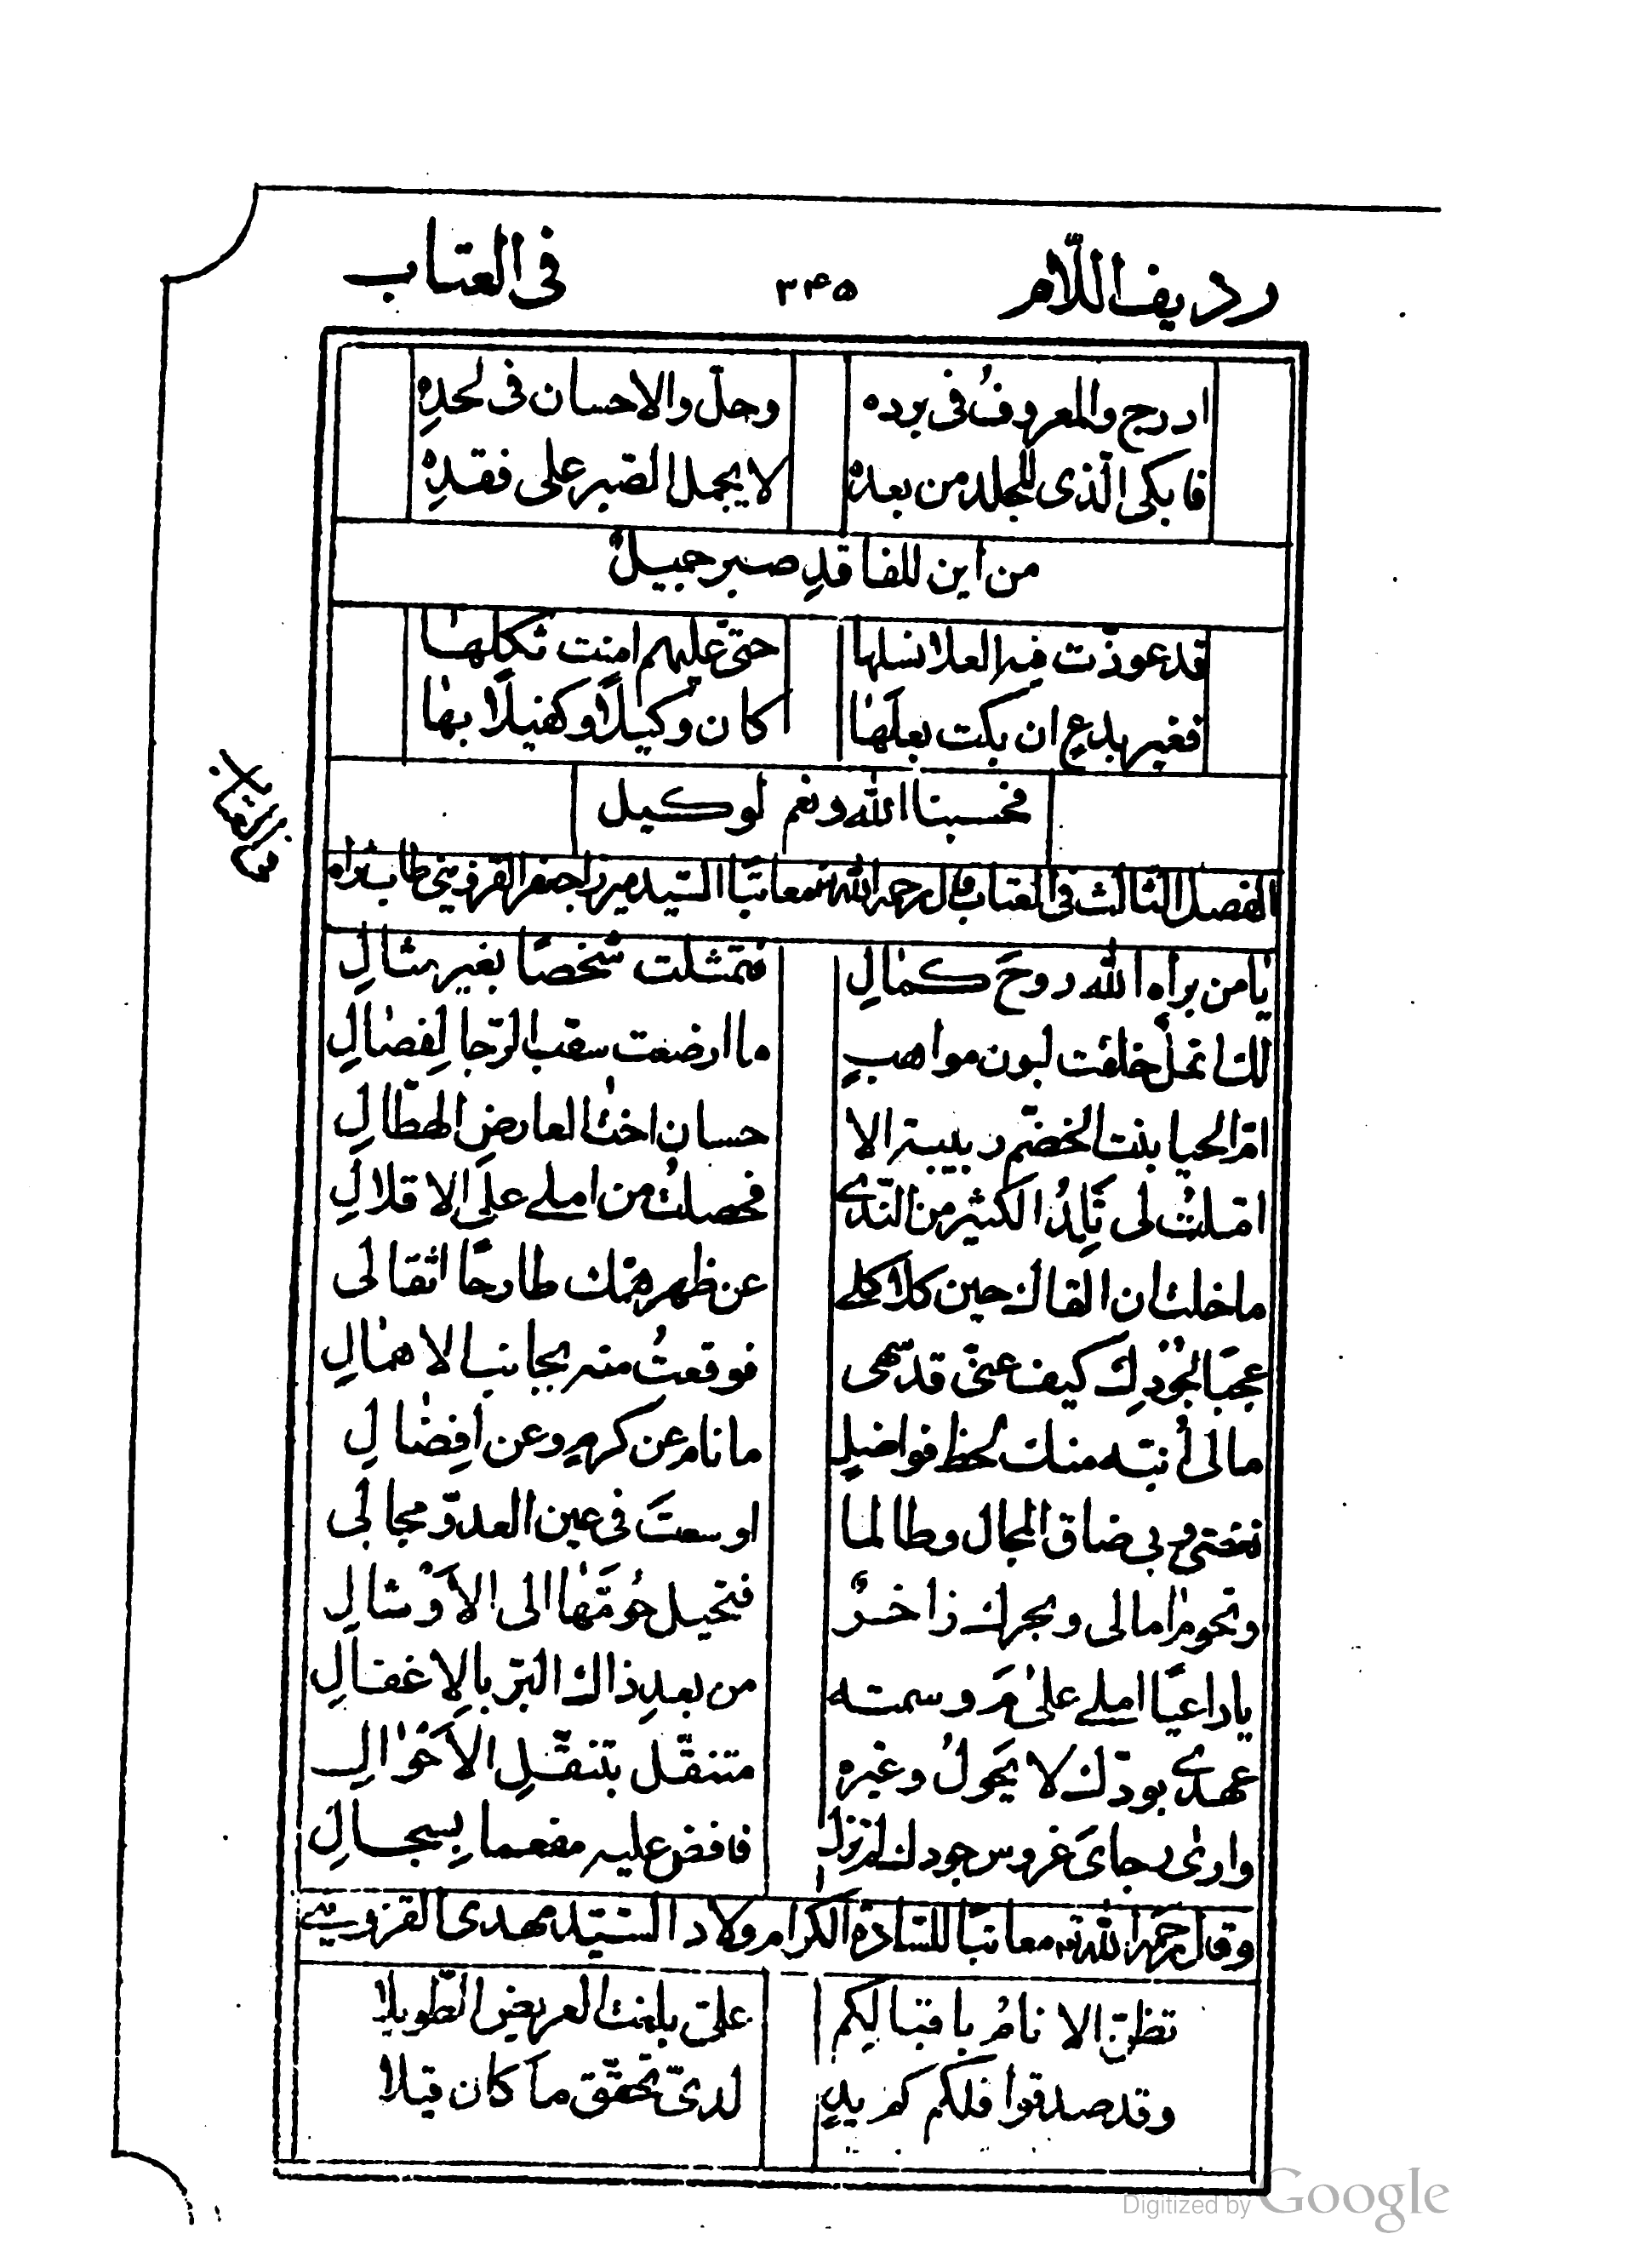 رديف اللّام ٣٤٥ فى العتاب
ادرج والمعروفُ فى برده وحلّ والاحسان فى لحدِهِ
فابكى الّذى للجلد من بعدهُ لا يجمل الصّبر على فقدِهِ
من اين للفاقدِ صبر جميلُ
قد عوذت فيه العلا نسلها حتّى عليهم امنت ثكلها
فغير بدعٍ ان بكت بعلَها كان وكيلًا وكفيلًا بها
فحسبنا الله ونعم لوكيل
الفصل الثالث فى العتاب قال رحمه الله معاتبًا السّيد ميرزا جعفر القزوينى طاب ثراه
يا من براه الله روحَ كمالِ فتمثلت شخصًا بغير مثالِ
لك انمل خلقت لبون مواهبٍ ما ارضعت سقب الرّجا لفصالِ
امّ الحيا بنت الخضمّ ربيبة الا حسان اخت العارضِ الهطّالِ
امّلتُ لى تَلِدُ الكثير من النّدى فحصلتُ من املى على الاقلالِ
ما خلت ان القاك حين كلاكلى عن ظهر همّك طارحًا اثقالى
عجبًا لجُودِك كيف عنّى قد سهى فوقعتُ منه بجانب الاهمالِ
مالى أُنبّه منك لحظ فواضلٍ ما نام عن كرمٍ وعن اِفضالِ
فمتى بى ضاق المجال وطالما اوسعتَ فى عين العدوّ مجالى
وتحوم امالى وبحرك زاخرٌ فتحيل حُوّمَها الى الاَوْشالِ
يا داعيًا املى على مر وسمته من بعدِ ذاك البرّ بالِاغفالِ
عهدى بودّك لا يحولُ وغيره متنقّل بتنقّلِ الاَحْوالِ
وارى رجاىَ غروس جودك لم تزل فافض عليه مفعما بِسجالِ
وقال رحمه الله معاتبًا للسّادة الكرام ولاد السّيد مهدى القزوينى
تظنّ الانامُ باقبالكم علىّ بلغت العريض الطّويلا
وقد صدقوا فلكم كم يدٍ لدىّ تحقّق ما كان قيلا
Digitized by Google